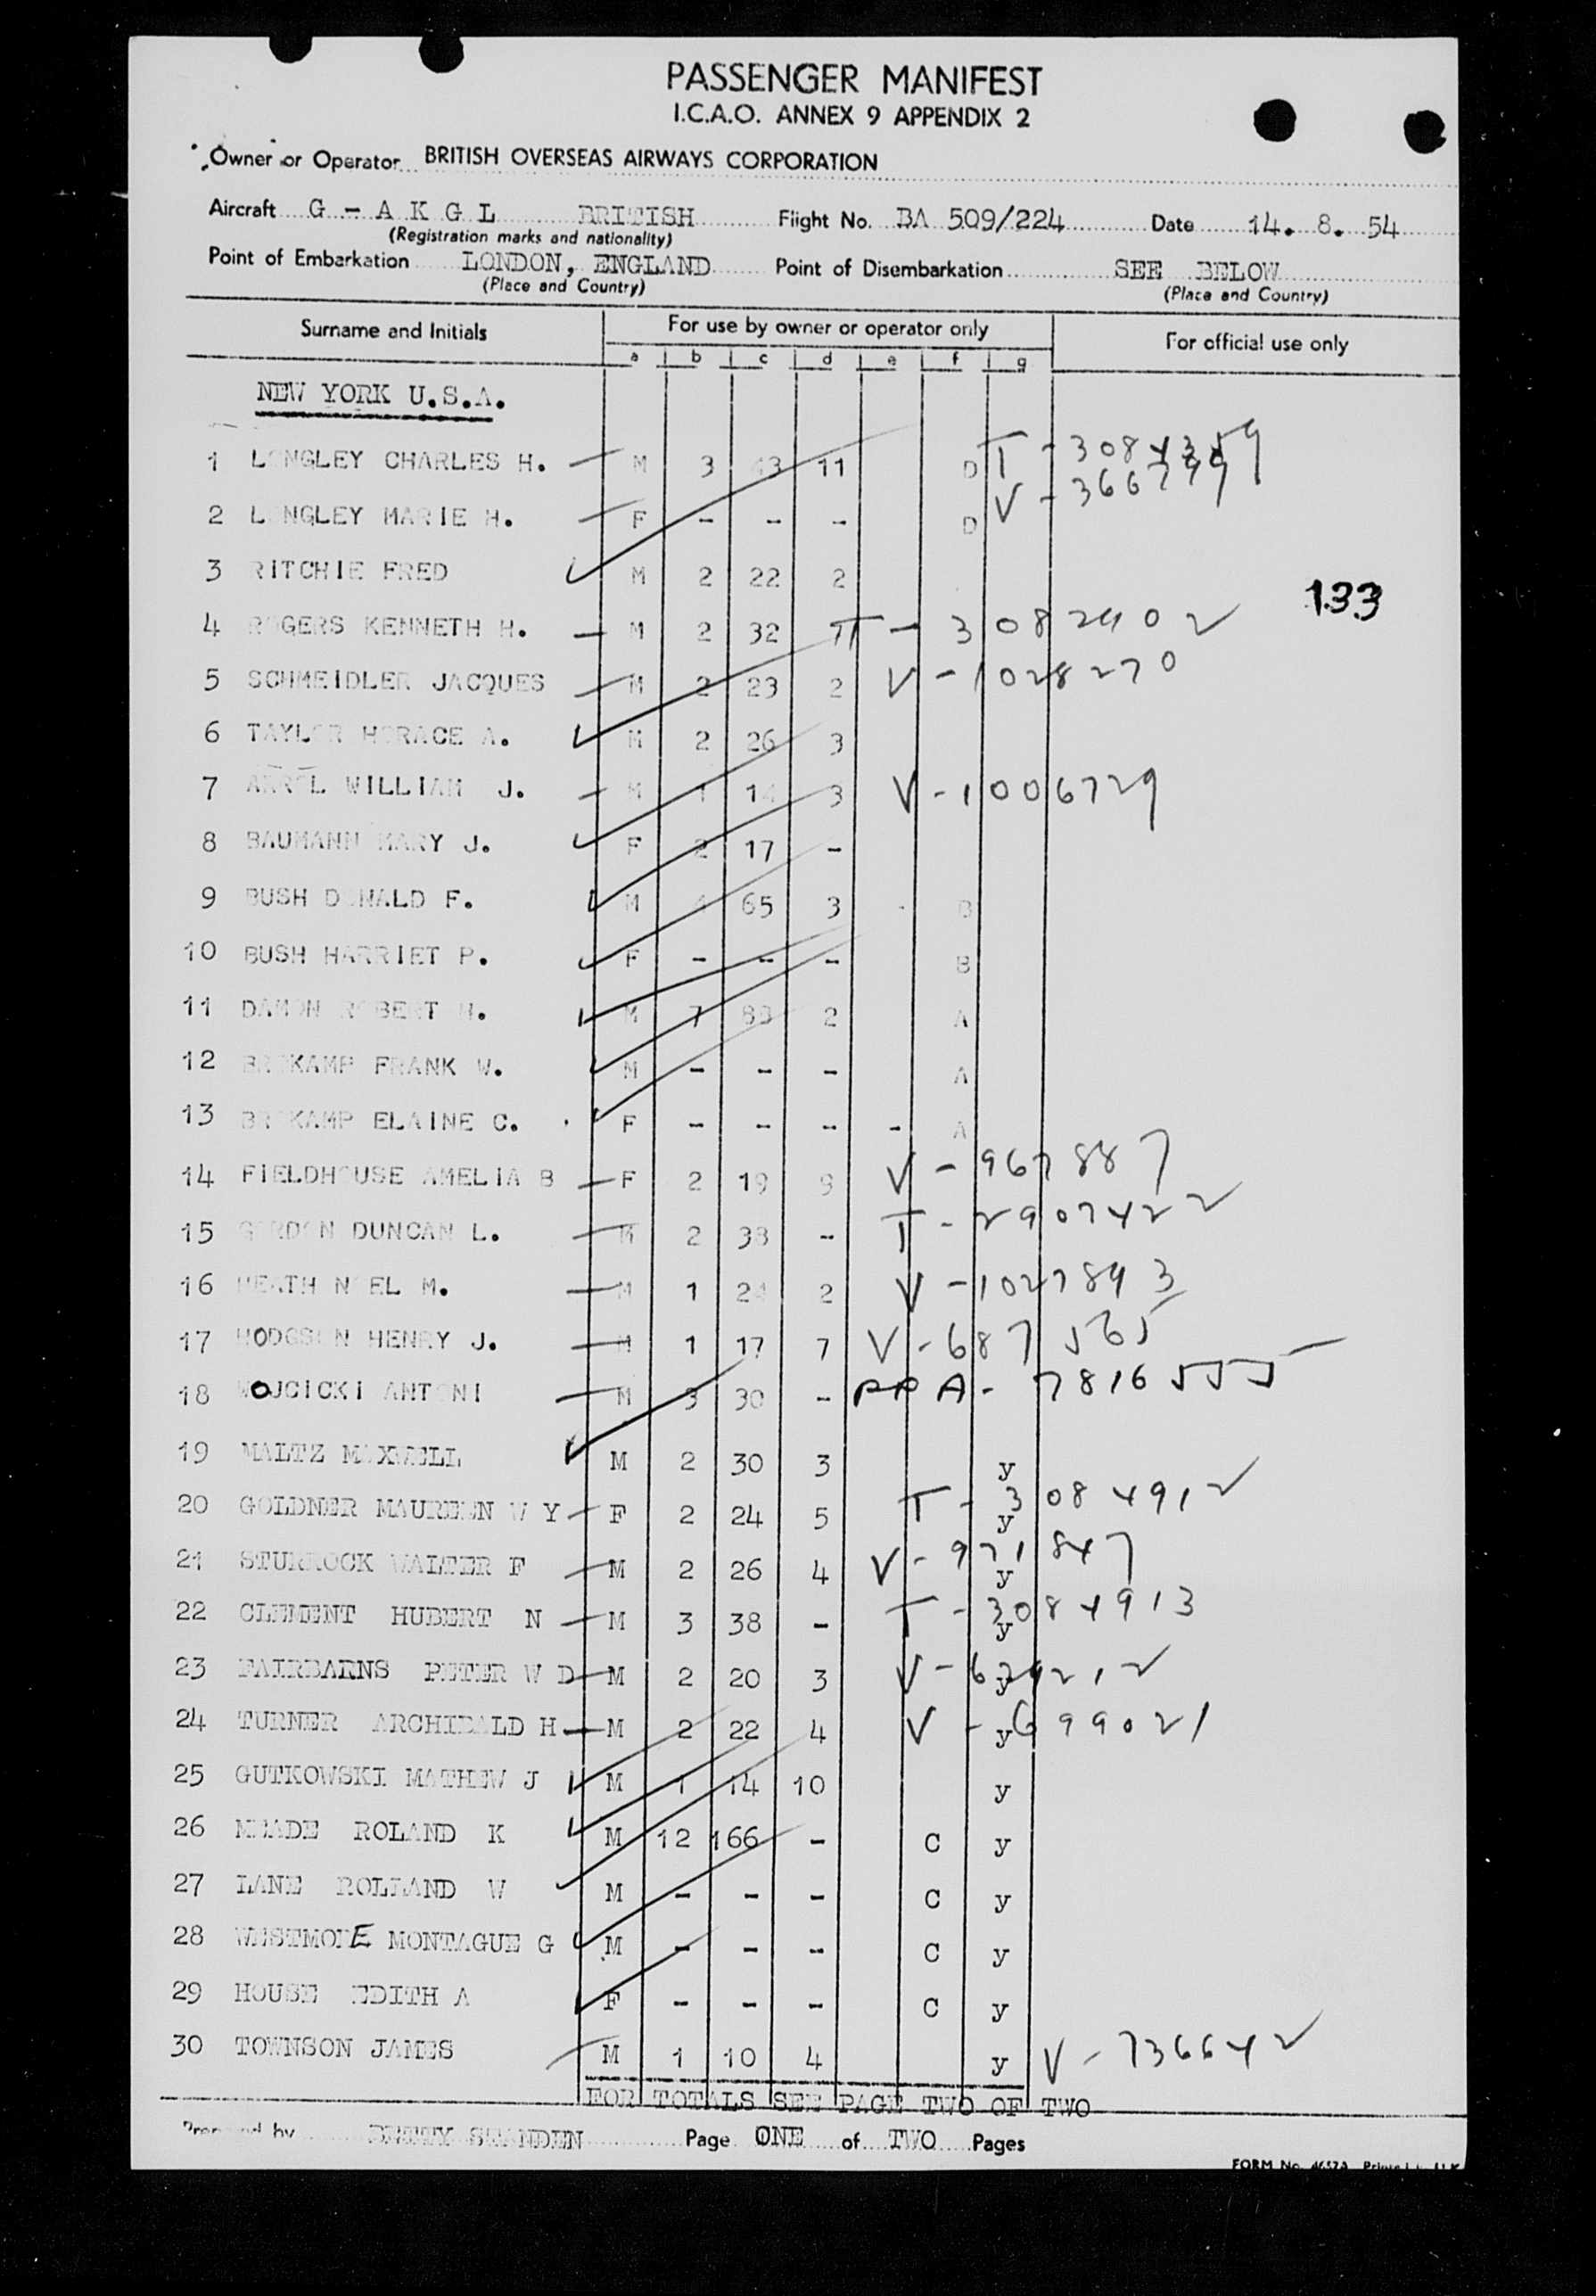 PASSENGER MANIFEST
I.C.A.O. ANNEX 9 APPENDIX 2
Owner or Operator BRITISH OVERSEAS AIRWAYS CORPORATION
Aircraft G - A K G L BRITISH Flight No. BA 509/224 Date 14. 8. 54
(Registration marks and nationality)
Point of Embarkation LONDON, ENGLAND Point of Disembarkation SEE BELOW
(Place and Country) (Place and Country)
Surname and Initials For use by owner or operator only For official use only
a b c d e f g
NEW YORK U.S.A.
1 LONGLEY CHARLES H. M 3 43 11 D T - 3084359
2 LONGLEY MARIE H. F - - - D V - 3667799
3 RITCHIE FRED M 2 22 2
133
4 ROGERS KENNETH H. M 2 32 T - 3082402
5 SCHMEIDLER JACQUES M 2 23 2 V - 1028270
6 TAYLOR HORACE A. M 2 26 3
7 ARROL WILLIAM J. M 1 14 3 V - 1006729
8 BAUMANN MARY J. F 2 17 -
9 BUSH DONALD F. M 4 65 3 B
10 BUSH HARRIET P. F - - - B
11 DAMON ROBERT H. M 7 88 2 A
12 BROKAMP FRANK W. M - - - A
13 BROKAMP ELAINE C. F - - - - A
14 FIELDHOUSE AMELIA B F 2 19 9 V - 967887
15 GORDON DUNCAN L. M 2 38 - T - 2907422
16 HEATH NOEL M. M 1 24 2 V - 1027893
17 HODGSON HENRY J. M 1 17 7 V - 687565
18 WOJCICKI ANTONI M 3 30 - PPA - 7816555
19 MALTZ MAXWELL M 2 30 3 y
20 GOLDNER MAUREEN W Y F 2 24 5 y T - 3084912
21 STURROCK WALTER F M 2 26 4 y V - 971847
22 CLEMENT HUBERT N M 3 38 - y T - 3084913
23 FAIRBARNS PETER W D M 2 20 3 y V - 679212
24 TURNER ARCHIBALD H M 2 22 4 y V - 699021
25 GUTKOWSKI MATHEW J M 1 14 10 y
26 MEADE ROLAND K M 12 166 - C y
27 LANE ROLLAND W M - - - C y
28 WESTMORE MONTAGUE G M - - - C y
29 HOUSE EDITH A F - - - C y
30 TOWNSON JAMES M 1 10 4 y V - 736642
FOR TOTALS SEE PAGE TWO OF TWO
Prepared by BETTY STANDEN Page ONE of TWO Pages
FORM No. 4657A